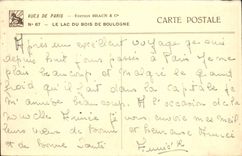 RUES DE PARIS - EDITION BRAUN & Cie
No 67 - LE LAC DU BOIS DE BOULOGNE
CARTE POSTALE
Après un excellent voyage je suis
depuis huit jours à Paris je me
plais beaucoup et malgré le grand
froid qu'il fait dans la capitale je
m'amuse beaucoup. A l'occasion de la
nouvelle Année je vous envoie mes meil
leurs vœux de bonne et heureuse Année
et de bonne santé